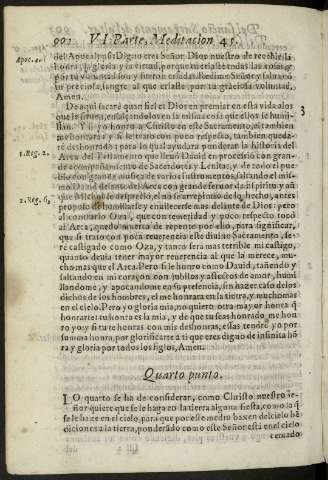 902 VI. Parte, Meditacion 45.
Apoc. 4.
del Apocalypsi: Digno eres Señor Dios nuestro de recebir la
honra, la gloria, y la virtud, porque tu criaste todas las cosas, y
por tu voluntad son y fueron criadas. Redime Señor y salua cõ
tu preciosa sangre al que criaste por tu graciosa voluntad,
Amen.
De aqui sacarè quan fiel es Dios en premiar en esta vida a los
que le siruen, ensalçandolos en essa misma cosa que ellos se humi-
llan. Y si yo honro a Christo en este Sacramento, assi tambien
me honrarà: y si le trato con poco respeto, tambien queda-
rè deshonrado; para lo qual ayudara ponderar la historia del
1. Reg. 2.
Arca del Testamento que lleuò Dauid en procession con gran-
de acompañamiento de Sacerdotes y Leuitas, y de todo el pue-
blo con grande musica de varios instrumentos, saltando el mis-
mo Dauid delante del Arca con grande feruor de Espiritu y aũ-
2. Reg. 6,
que Micol le despreciò, el no se arrepintio de lo hecho, antes
propuso de humillarse y enuilecerse mas delante de Dios: pero
al contrario Oza, que con temeridad y poco respeto tocò
al Arca, quedò muerto de repente por ello, para significar,
que si trato con poca reuerencia este diuino Sacramento, se-
rè castigado como Oza, y tanto serà mas terrible mi castigo,
quanto deuia tener mayor reuerencia al que la merece, mu-
cho mas que el Arca. Pero si le honro como Dauid, tañendo y
saltando en mi coraçon con jubilos y afectos de amor, humi
llandome, y apocandome en su presencia, sin hazer caso de los
dichos de los hombres, el me honrara en la tierra, y mucho mas
en el cielo. Pera yo gloria mia, no quiero otra mayor honra q̃
honrarte: tu honra es la mia, y de que tu seas honrado, me hon
ro yo, y si tu te honras con mis deshonras, essas tendrè yo por
summa honra, por glorificarte a ti que eres digno de infinita hõ
ra y gloria por todos los siglos, Amen.
Quarto punto.
LO quarto se ha de considerar, como Christo nuestro Se-
ñor quiere que se le haga en la tierra alguna fiesta, como la q̃
se le haze en el cielo, para que por este medio baxen del cielo bẽ
diciones a la tierra, ponderãdo como este Señor està en el cielo
cercado